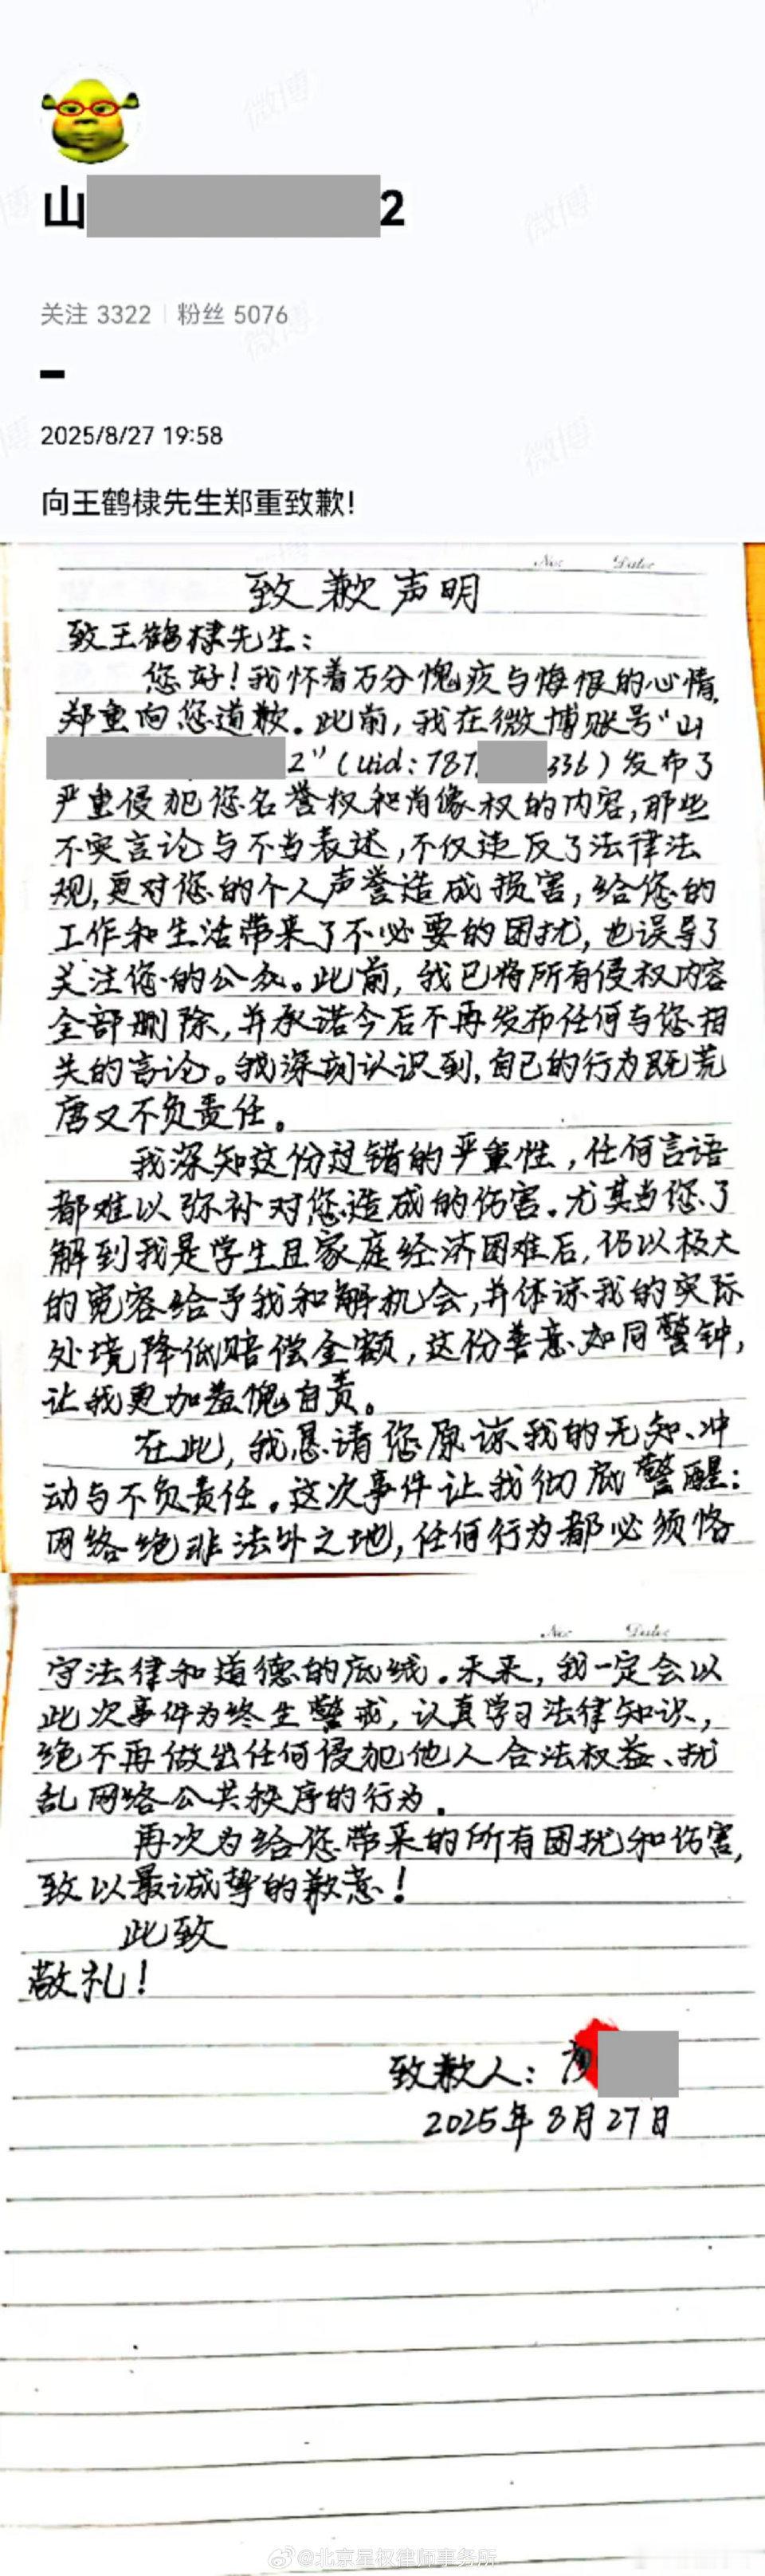 山 2
关注 3322 粉丝 5076
2025/8/27 19:58
向王鹤棣先生郑重致歉!
No: Date:
致歉声明
致王鹤棣先生:
您好!我怀着万分愧疚与悔恨的心情,
郑重向您道歉。此前,我在微博账号“山
2”(uid:787 336)发布了
严重侵犯您名誉权和肖像权的内容,那些
不实言论与不当表述,不仅违反了法律法
规,更对您的个人声誉造成损害,给您的
工作和生活带来了不必要的困扰,也误导了
关注您的公众。此前,我已将所有侵权内容
全部删除,并承诺今后不再发布任何与您相
关的言论。我深刻认识到,自己的行为既荒
唐又不负责任。
我深知这份过错的严重性,任何言语
都难以弥补对您造成的伤害。尤其当您了
解到我是学生且家庭经济困难后,仍以极大
的宽容给予我和解机会,并体谅我的实际
处境降低赔偿金额,这份善意如同警钟,
让我更加羞愧自责。
在此,我恳请您原谅我的无知、冲
动与不负责任。这次事件让我彻底警醒:
网络绝非法外之地,任何行为都必须恪
No: Date:
守法律和道德的底线。未来,我一定会以
此次事件为终生警戒,认真学习法律知识,
绝不再做出任何侵犯他人合法权益、扰
乱网络公共秩序的行为。
再次为给您带来的所有困扰和伤害,
致以最诚挚的歉意!
此致
敬礼!
致歉人:
2025年8月27日
@北京星权律师事务所